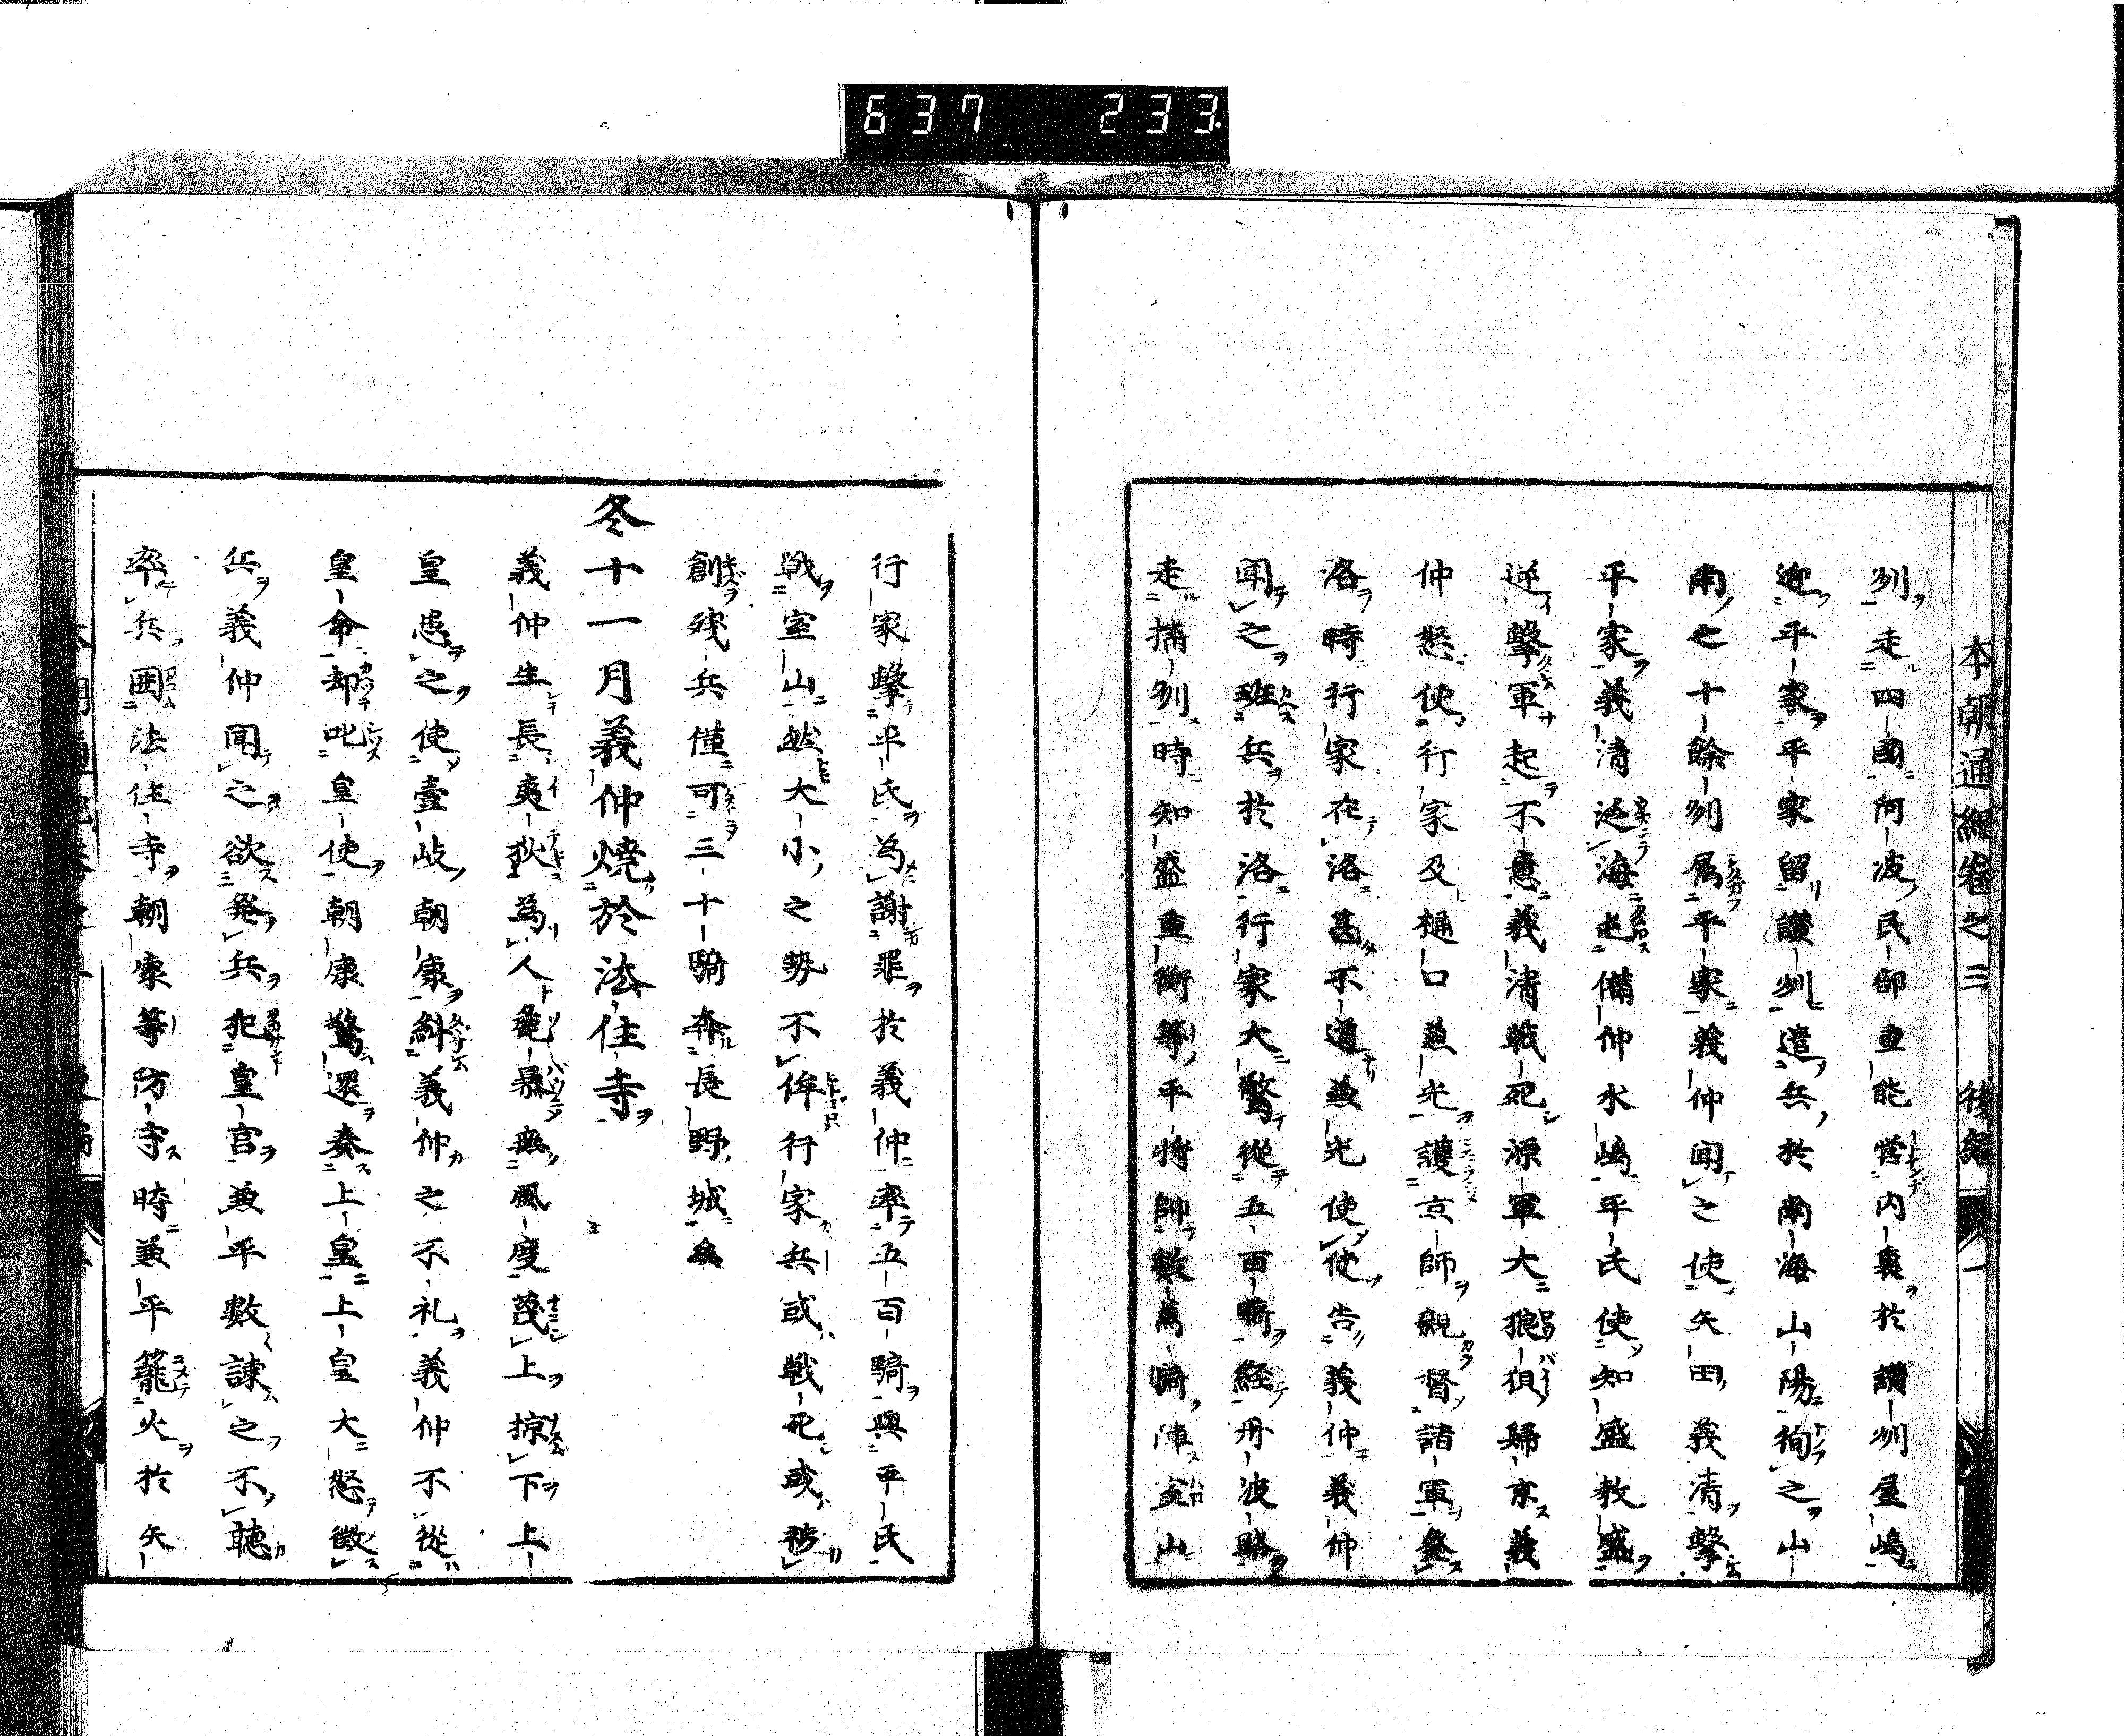 637 233
本朝通紀卷之三 後編 一
州走四國阿波民部重能営内裏於讃州屋嶋
迎平家平家留讃州遣兵於南海山陽徇之山
南之十餘州属平家義仲聞之使矢田義清撃
平家義清泛海屯備仲水嶋平氏使知盛教盛
逆撃軍起不意義清戦死源軍大狼狽歸京義
仲怒使行家及樋口兼光護京師親督諸軍發
洛時行家在洛甚不道兼光使使告義仲義仲
聞之班兵於洛行家大驚從五百騎経丹波路
走播州時知盛重衡等平将帥數萬騎陣室山
行家撃平氏為謝罪於義仲率五百騎與平氏
戦室山然大小之勢不侔行家兵或戦死或被
創殘兵僅可三十騎奔長野城矣
冬十一月義仲焼於法住寺
義仲生長夷狄為人麁暴無風度蔑上掠下上
皇患之使壹岐朝康糾義仲之不礼義仲不從
皇命却叱皇使朝康驚還奏上皇上皇大怒徴
兵義仲聞之欲発兵犯皇宮兼平數諫之不聴
率兵囲法住寺朝康等防守時兼平籠火於矢